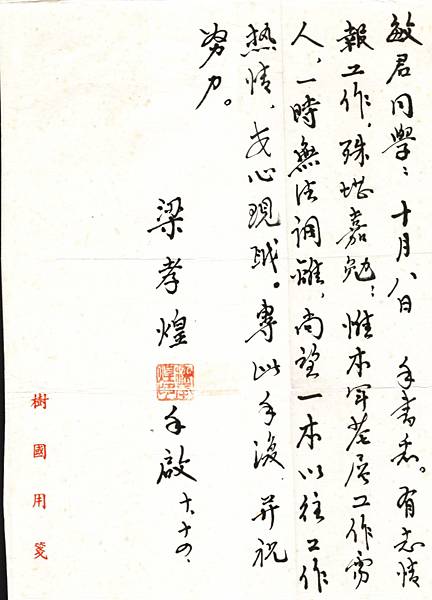 敏君同學：十月八日 手書悉。有志情
報工作，殊堪嘉勉；惟本軍基層工作需
人，一時無法調離，尚望一本以往工作
熱情，安心現職。專此手復 並祝
努力。
梁孝煌 手啟 十、十四、
樹國用箋